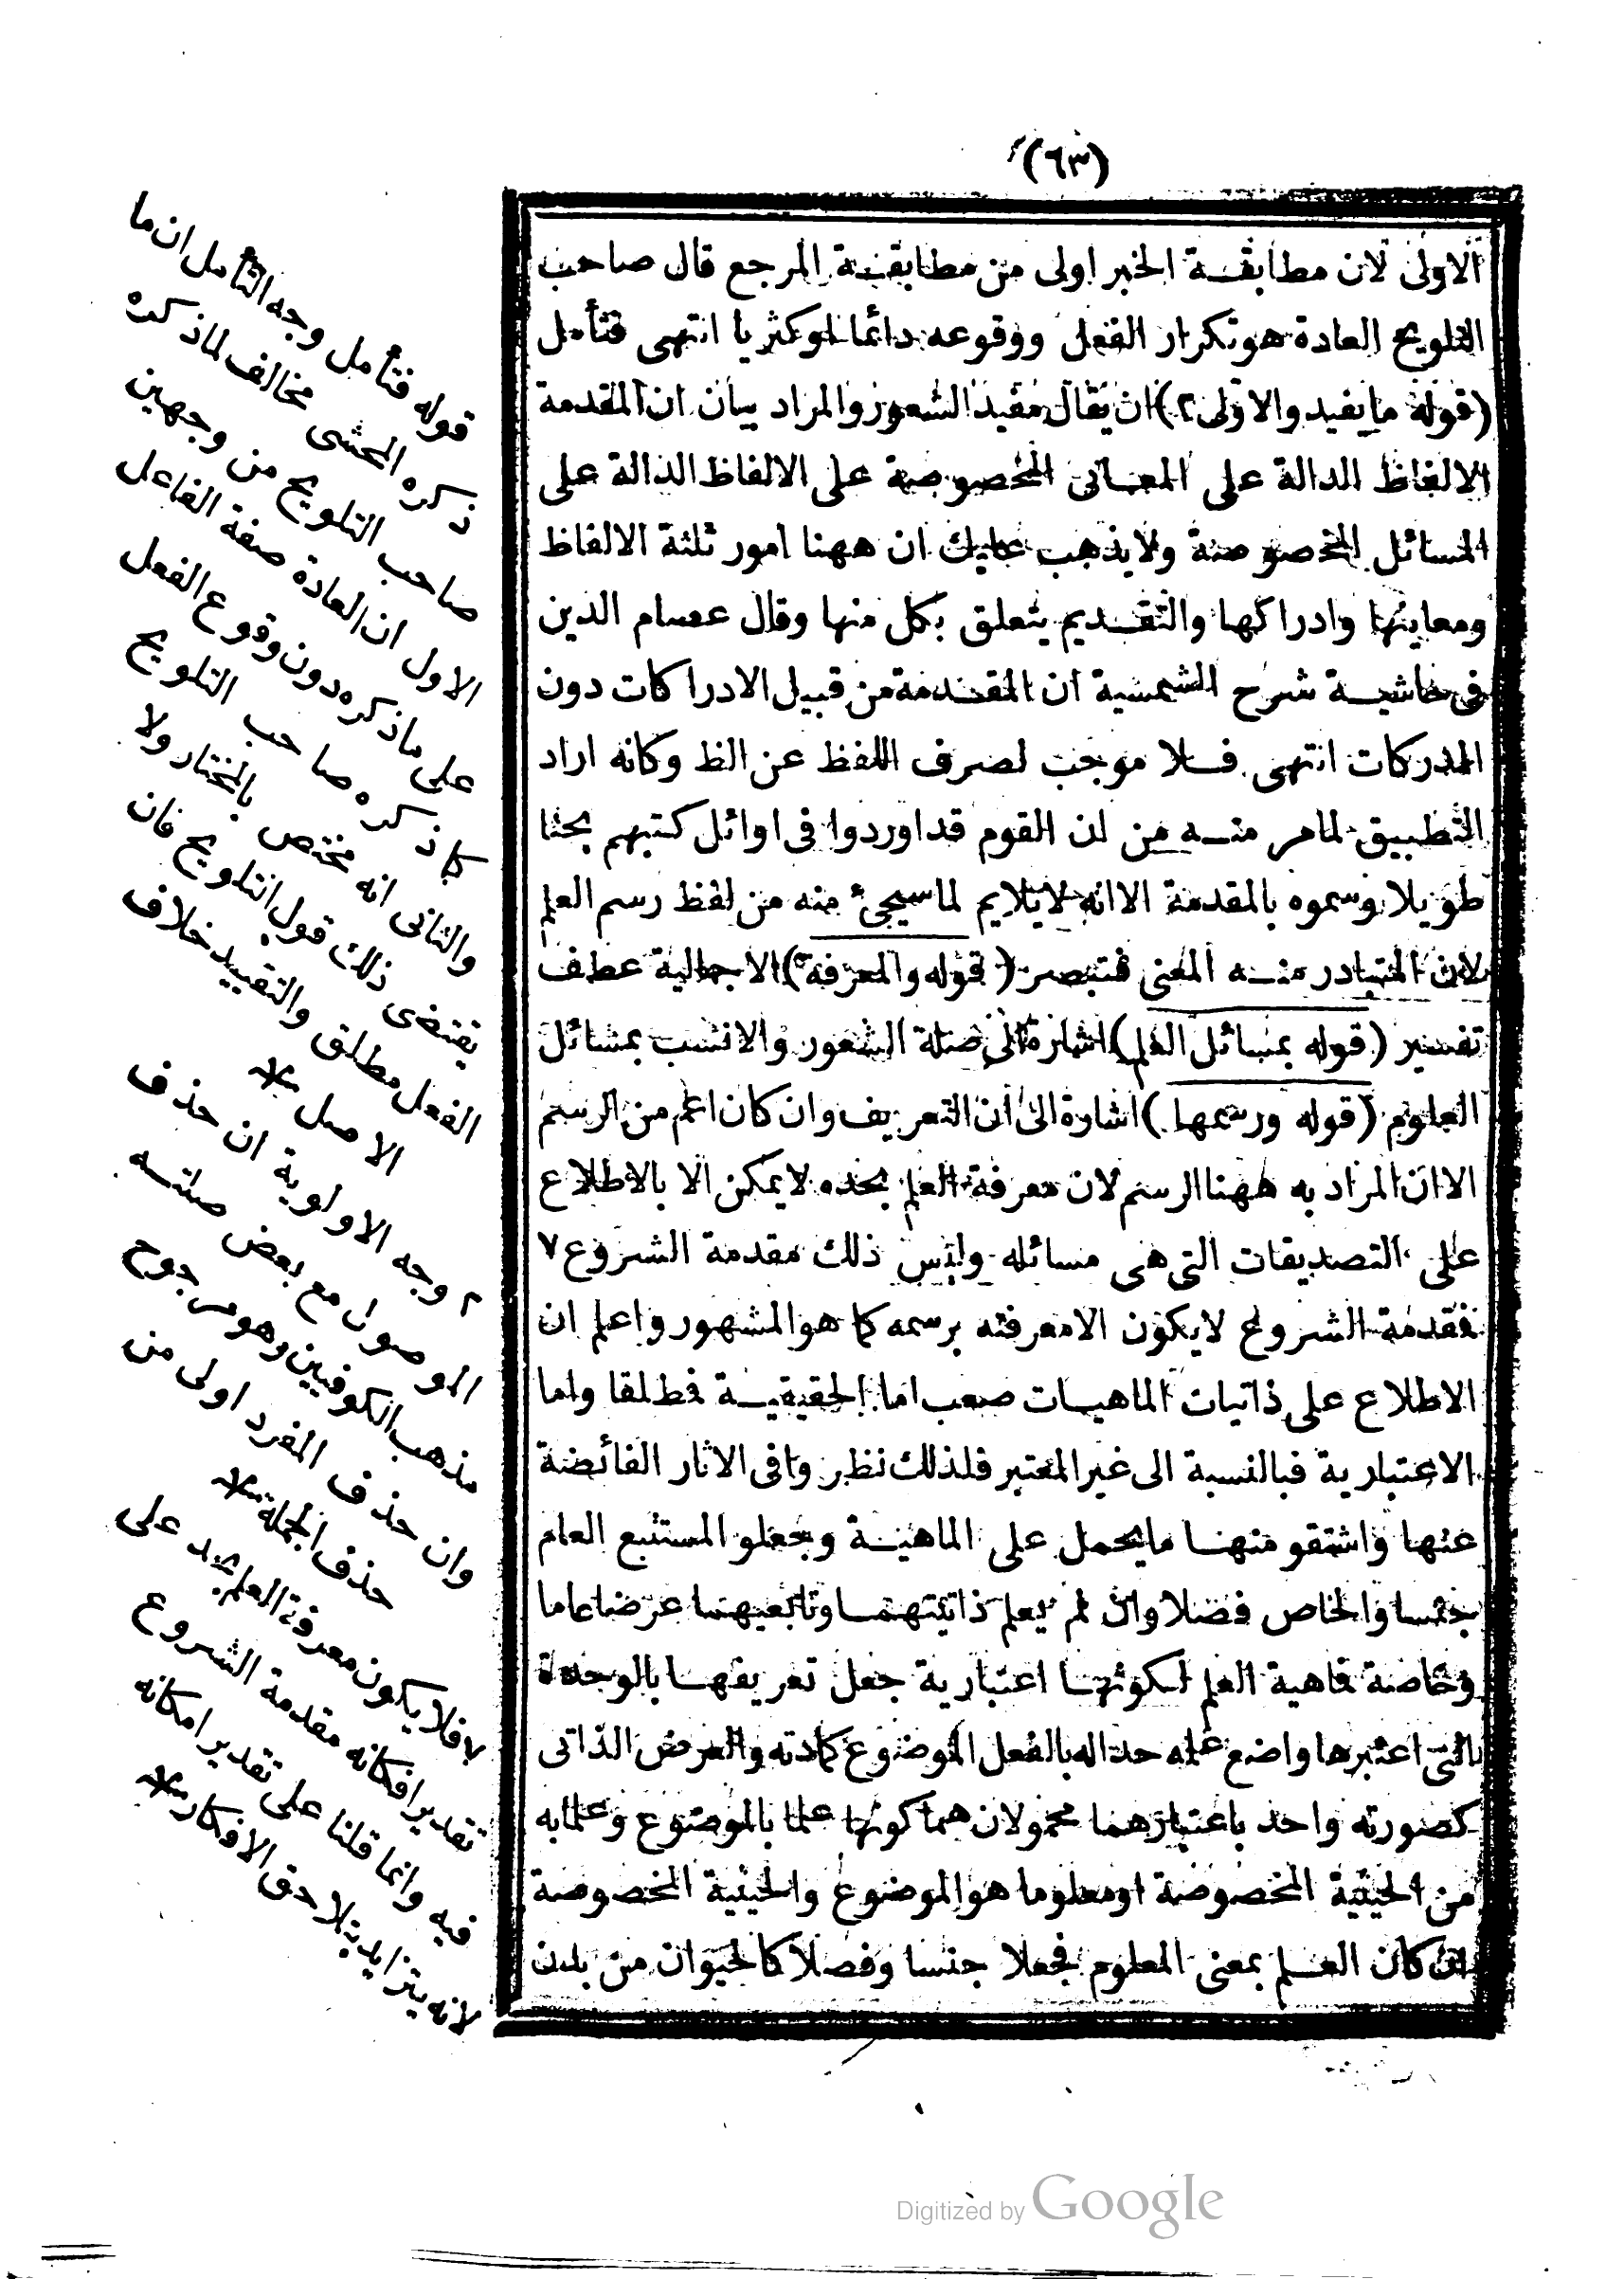 (٦٣)
الاولى لان مطابقة الخبر اولى من مطابقة المرجع قال صاحب
التلويح العادة هو تكرار الفعل ووقوعه دائما او كثريا انتهى فتأمل
(قوله ما يفيد والاولى ٢) ان يقال مفيد الشعور والمراد بيان ان المقدمة
الالفاظ الدالة على المعانى المخصوصة على الالفاظ الدالة على
المسائل المخصوصة ولا يذهب عليك ان ههنا امور ثلثة الالفاظ
ومعاينها وادراكها والتقديم يتعلق بكل منها وقال عصام الدين
فى حاشية شرح الشمسية ان المقدمة من قبيل الادراكات دون
المدركات انتهى فلا موجب لصرف اللفظ عن الظ وكانه اراد
التطبيق لما مر منه من ان القوم قد اوردوا فى اوائل كتبهم بحثا
طويلا وسموه بالمقدمة الا انه لا يلايم لما سيجىء منه من لفظ رسم العلم
لان المتبادر منه المعنى فتبصر (قوله والمعرفة) الاجمالية عطف
تفسير (قوله بمسائل العلم) اشارة الى صلة الشعور والانسب بمسائل
العلوم (قوله ورسمها) اشارة الى ان التعريف وان كان اعم من الرسم
الا ان المراد به ههنا الرسم لان معرفة العلم بحده لا يمكن الا بالاطلاع
على التصديقات التى هى مسائله وليس ذلك مقدمة الشروع ٧
فقدمة الشروع لا يكون الا معرفته برسمه كما هو المشهور واعلم ان
الاطلاع على ذاتيات الماهيات صعب اما الحقيقية فمطلقا واما
الاعتبارية فبالنسبة الى غير المعتبر فلذلك نظروا فى الاثار الفائضة
عنها واشتقو منها ما يحمل على الماهية وجعلو المستتبع العام
جنسا والخاص فصلا وان لم يعلم ذاتيتهما وتابعيهما عرضا عاما
وخاصة فاهية العلم لكونها اعتبارية جعل تعريفها بالوحدة
التى اعتبرها واضع علمه حداله بالفعل الموضوع كادته والعرض الذاتى
كصورته واحد باعتبارهما محمولان هما كونها علما بالموضوع وعلما به
من الحيثية المخصوصة او معلوما هو الموضوع والحيثية المخصوصة
ان كان العلم بمعنى المعلوم فجعلا جنسا وفصلا كالحيوان من بدن
قوله فتأمل وجه التأمل ان ما
ذكره المحشى مخالف لما ذكره
صاحب التلويح من وجهين
الاول ان العادة صفة الفاعل
على ما ذكره دون وقوع الفعل
كما ذكره صاحب التلويح
والثانى انه مختص بالمختار ولا
يقتضى ذلك قول التلويح فان
الفعل مطلق والتقييد خلاف
الاصل
٢ وجه الاولوية ان حذف
الموصول مع بعض صلته
مذهب الكوفيين وهو مرجوح
وان حذف المفرد اولى من
حذف الجملة
٧ فلا يكون معرفة العلم بحد على
تقدير افكانه مقدمة الشروع
فيه وانما قلنا على تقدير امكانه
لانه يتزايد بتلاحق الافكار
Digitized by Google